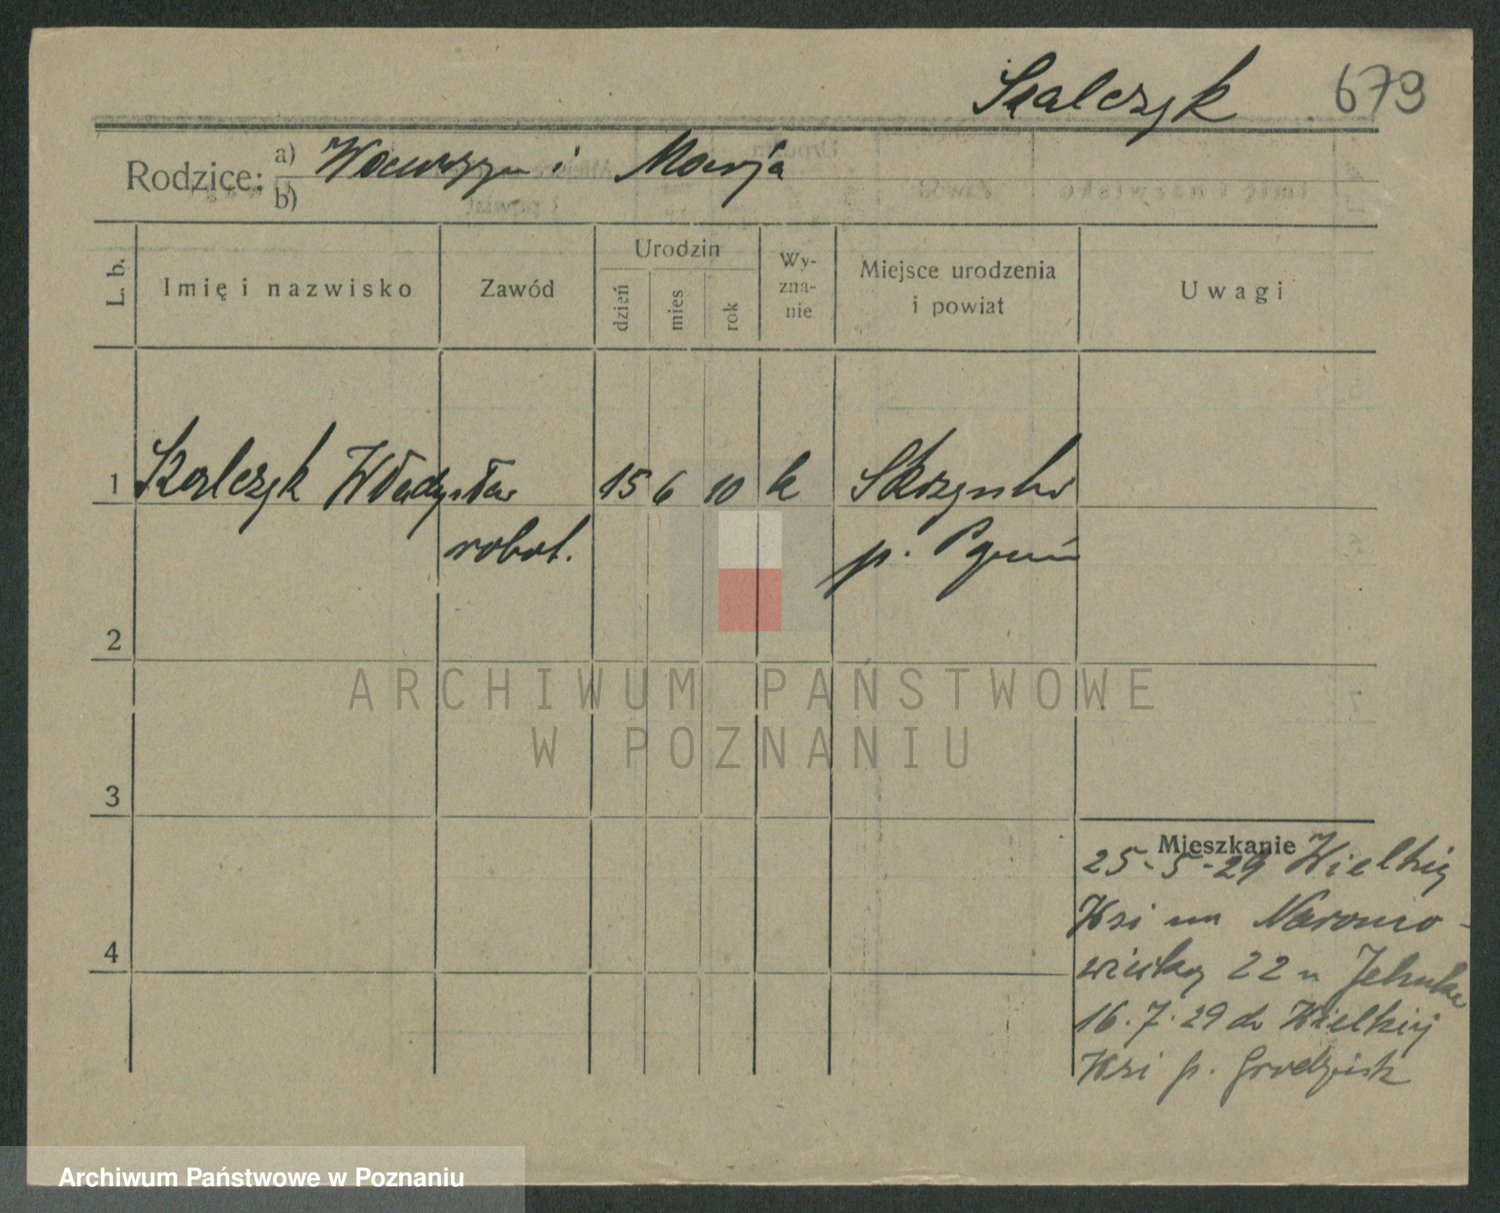 Szalczyk 679
Rodzice: a) Wawrzyn i Marja
b)
L. b. Imię i nazwisko Zawód Urodzin dzień mies rok Wy-zna-nie Miejsce urodzenia i powiat Uwagi
1 Szalczyk Władysław 15 6 10 k
robot. p.
2
3
4
Mieszkanie
25-5-29 Wielkiej
Wsi na Naramo-
wicką 22 u
16.7.29 do Wielkiej
Wsi p. Grodzisk
ARCHIWUM PAŃSTWOWE
W POZNANIU
Archiwum Państwowe w Poznaniu